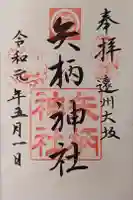 奉拝
遠州大坂
矢柄神社
矢柄神社
令和元年五月一日